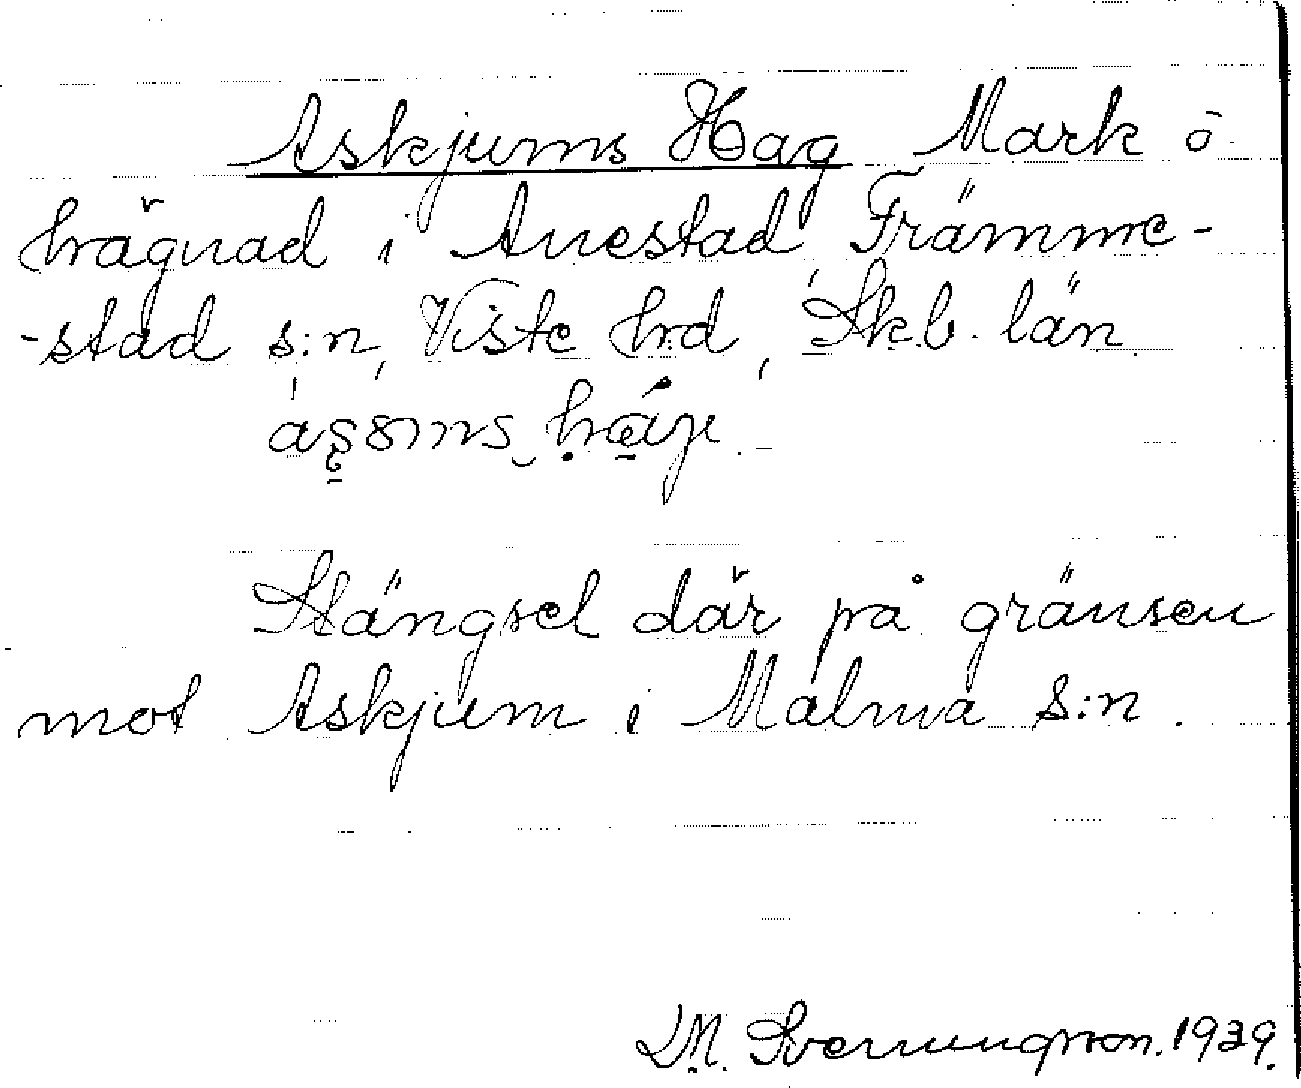 Askjums Hag Mark o.
hägnad i Anestad, Främme-
-stad s:n, Viste hrd, Skb. län.
Stängsel där på gränsen
mot Askjum i Malma s:n.
D.M. Svenungsson. 1939.